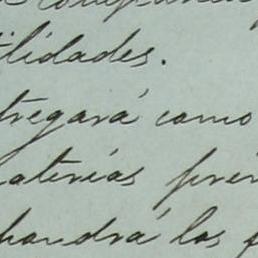 ilidades.
tregará como
aterias prim
pondrá los